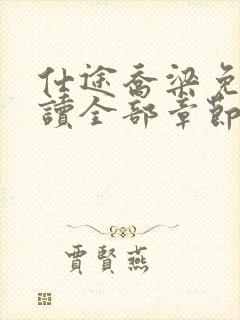 仕途喬梁免
讀全部章節
賈賢燕